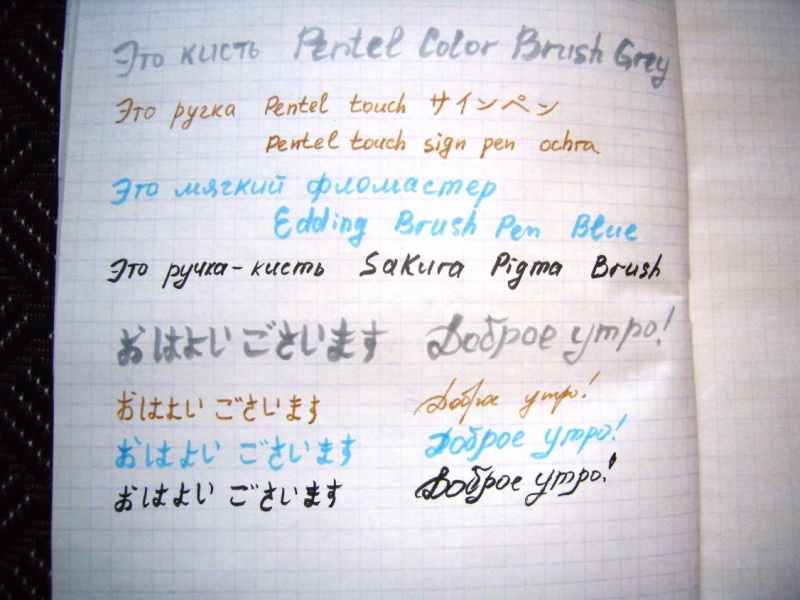 Это кисть Pentel Color Brush Grey
Это ручка Pentel touch サインペン
Pentel touch sign pen ochra
Это мягкий фломастер
Edding Brush Pen Blue
Это ручка-кисть Sakura Pigma Brush
おはよい ございます Доброе утро!
おはよい ごさいます Доброе утро!
おはよい ごさいます Доброе утро!
おはよい ごさいます Доброе утро!